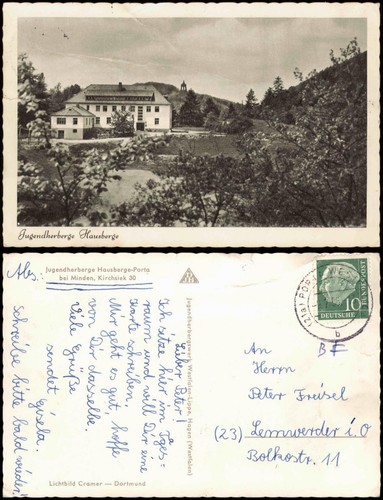 Jugendherberge Hausberge
Abs:
Jugendherberge Hausberge-Porta
bei Minden, Kirchsiek 30
Lieber Peter!
Ich sitze hier im Tages=
raum und will Dir eine
Karte schreiben.
Mir geht es gut, hoffe
von Dir dasselbe.
Viele Grüße
sendet Gisela.
Schreibe bitte bald wieder!
Jugendherbergswerk Westfalen-Lippe, Hagen (Westfalen)
Lichtbild Cramer — Dortmund
(21a) PORTA
b
10
DEUTSCHE BUNDESPOST
An
Herrn
Peter Freisel
(23) Lemwerder i. O
Bolkostr. 11